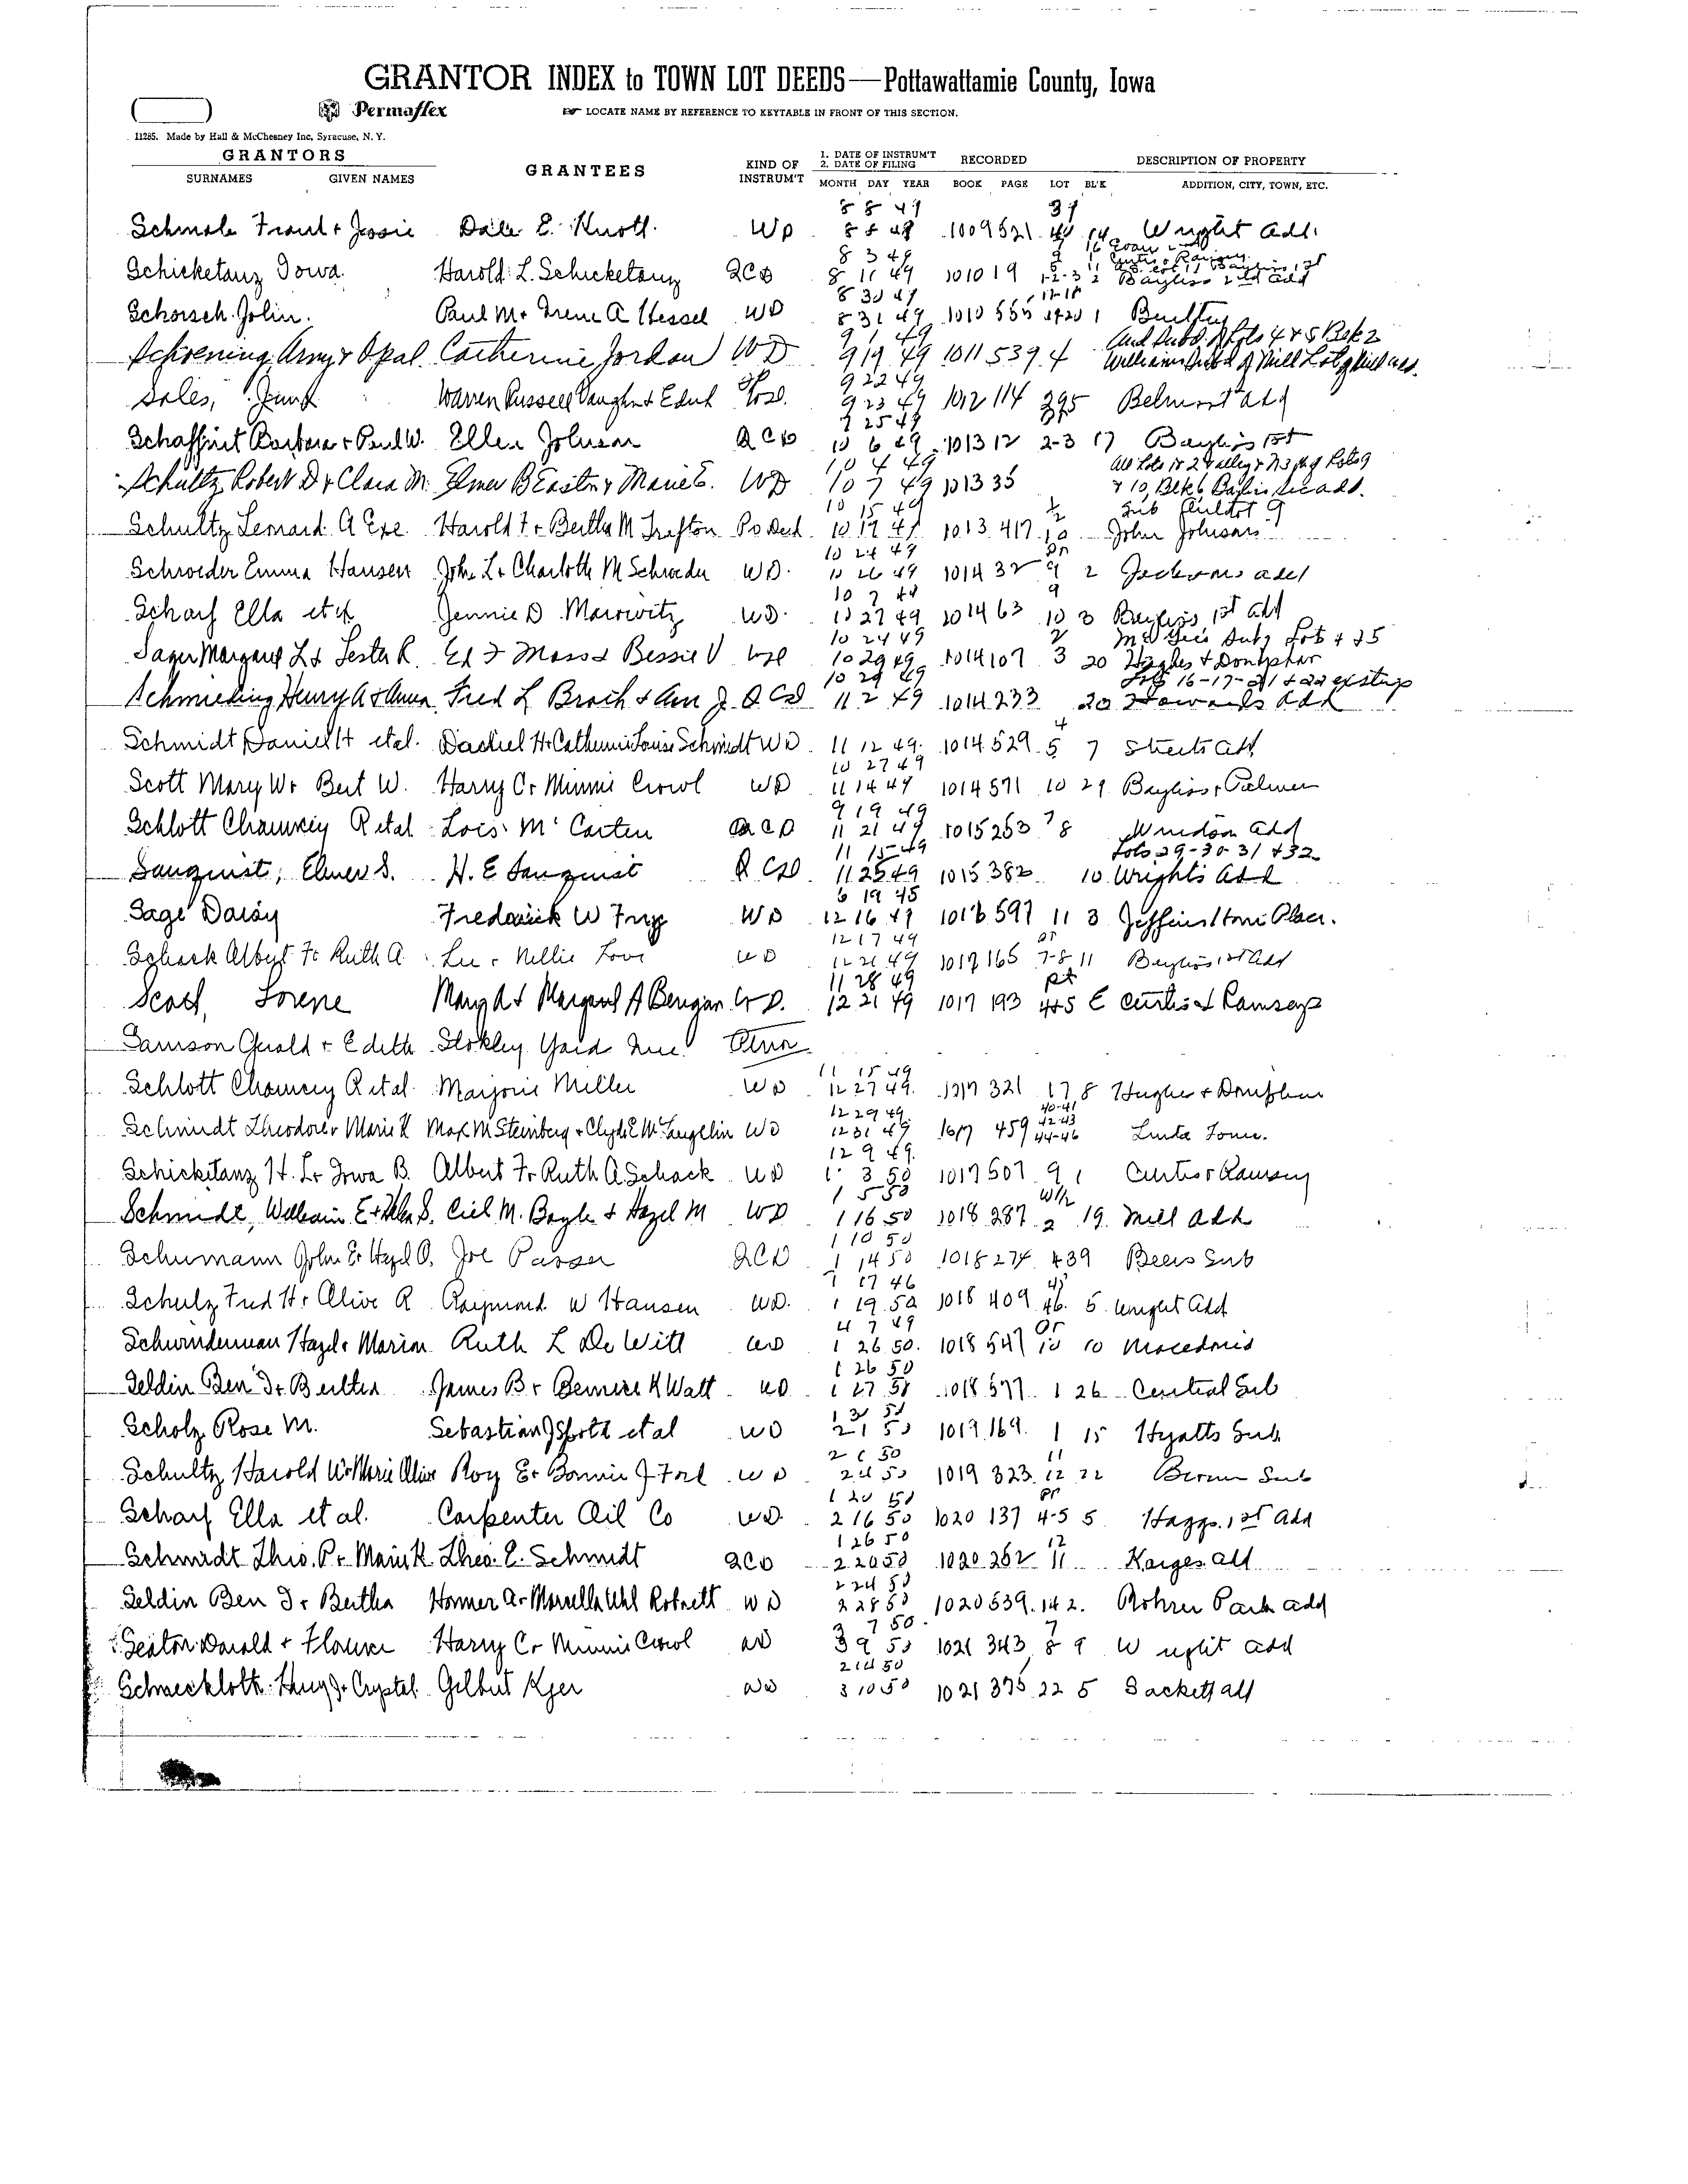 GRANTOR INDEX to TOWN LOT DEEDS—Pottawattamie County, Iowa
Permaflex ☞ LOCATE NAME BY REFERENCE TO KEYTABLE IN FRONT OF THIS SECTION.
11285. Made by Hall & McChesney Inc, Syracuse, N. Y.
GRANTORS GRANTEES KIND OF INSTRUM'T 1. DATE OF INSTRUM'T 2. DATE OF FILING RECORDED DESCRIPTION OF PROPERTY
SURNAMES GIVEN NAMES MONTH DAY YEAR BOOK PAGE LOT BL'K ADDITION, CITY, TOWN, ETC.
8 8 49 39
Schmale Frank + Jessie Dale E. Knott. WD 8 8 49 1009 521 40 14 Wright Add.
8 3 49
Schicketanz Iowa. Harold L. Schicketanz QCD 8 11 49 1010 19 1-2-3 2 Bayliss 2nd Add
8 30 49 17-18
Schorsch John. Paul M + Irene A Hessel WD 8 31 49 1010 555 19-20 1
9 1 49 Aud Subd. of Lots 4 + 5 Blk 2
Schroening, Amy + Opal. Catherine Jordan WD 9 19 49 1011 539 4 Williams Subd of Mill Lot
9 22 49
Sales, Warren Russell Vaughn + 9 23 49 1012 114 395 Belmont Add
9 25 49
Schaffnit Barbara + Paul W. Ellen Johnson QCD 10 6 49 1013 12 2-3 17 Bayliss 1st
10 4 49
Schultz Robert D + Clara M. Elmer B Easton + Marie E. WD 10 7 49 1013 35 + 10, Blk 6 Bayliss Sec add.
10 15 49 1/2 Sub
Schultz Leonard A Exe. Harold F + Bertha M Trefton 10 19 49 1013 417 10 John Johnson
10 24 49 Pt
Schroeder Emma Hansen John L + Charlotte M Schroeder WD. 10 26 49 1014 32 9 2 Jacksons add
10 7 49 9
Scharf Ella et al Jennie D Marowitz WD. 10 27 49 1014 63 10 3 Bayliss 1st Add
10 24 49 2 McGees Sub
Sager Margaret L + Lester R. Ed F Moss + Bessie V WD 10 29 49 1014 107 3 20 Hughes + Doniphan
10 29 49 Lots 16-17-21 + 22
Schmieding Henry A + Anna Fred L Broch + Ann J. QCD 11 2 49 1014 233 20 Howards Add
4
Schmidt Daniel H et al. Daniel H + Catherine Louise Schmidt WD 11 12 49 1014 529 5 7 Streets Add
10 27 49
Scott Mary W + Bert W. Harry C + Minnie Crowl WD 11 14 49 1014 571 10 29 Bayliss + Palmer
9 19 49
Schlott Chauncey R et al Lois McCarten QCD 11 21 49 1015 253 7 8 Windom Add
11 15 49 Lots 29-30-31 + 32
Sanquist, Elmer S. H. E Sanquist QCD 11 25 49 1015 382 10 Wrights Add
6 19 45
Sage Daisy Frederick W Frye WD 12 16 49 1016 597 11 3
12 17 49 Pt
Schack Albert F + Ruth A Lee + Nellie Love WD 12 21 49 1017 165 7-8 11 Bayliss 1st Add
11 28 49 Pt
Scott, Lorene Mary A + Margaret A Bengar WD. 12 21 49 1017 193 4+5 E Curtis + Ramsey
Samson Gerald + Edith Stokley Yard Inc.
11 15 49
Schlott Chauncey R et al Marjorie Miller WD 12 27 49 1017 321 17 8 Hughes + Doniphan
12 29 49 40-41 42-43
Schmidt Theodore + Marie K Max M Steinberg + Clyde E McLaughlin WD 12 31 49 1017 459 44-46
12 9 49
Schicketanz H. L + Iowa B. Albert F + Ruth A Schack WD 1 3 50 1017 507 9 1 Curtis + Ramsey
1 5 50 W 1/2
Schmidt, William E + Helen S. Ciel M. Boyle + Hazel M WD 1 16 50 1018 287 2 19 Mill Add
1 10 50
Schumann John E + Hazel O. Joe Passer QCD 1 14 50 1018 274 439 Beers Sub
7 17 46 45
Schulz Fred H + Olive R Raymond W Hansen WD. 1 19 50 1018 409 46 5 Wright Add
4 7 49 Pt
Schwinderman Hazel + Marion Ruth L De Witt WD 1 26 50 1018 547 10 10 Macedonia
1 26 50
Seldin Ben I + Bertha James B + Bernice K Watt WD 1 27 50 1018 577 1 26 Central Sub
1 31 50
Scholz Rose M. Sebastian J Spoth et al WD 2 1 50 1019 169 1 15 Hyatts Sub
2 1 50 11
Schultz Harold W + Marie Olive Roy E + Bonnie J Ford WD 2 4 50 1019 323 12 22 Sub
1 20 50 Pt
Scharf Ella et al. Carpenter Oil Co WD 2 16 50 1020 137 4-5 5 Haggs 1st Add
1 26 50 12
Schmidt Theo. P + Marie K Theo. E. Schmidt QCD 2 20 50 1020 262 11 Karges Add
2 24 50
Seldin Ben I + Bertha Homer A + Marcella Uhl Robnett WD 2 28 50 1020 539 142 Rohrer Park Add
3 7 50 7
Seaton Darald + Florence Harry C + Minnie Crowl WD 3 9 50 1021 343 8 9 Wright Add
2 14 50
Schneckloth Hugo J + Crystal Gilbert Kjer WD 3 10 50 1021 375 22 5 Sackett Add